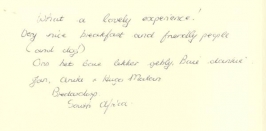 What a lovely experience!
Very nice breakfast and friendly people
(and dog)
Ons het baie lekker gebly. Baie dankie.
Jan, Anita + Hugo
South Africa